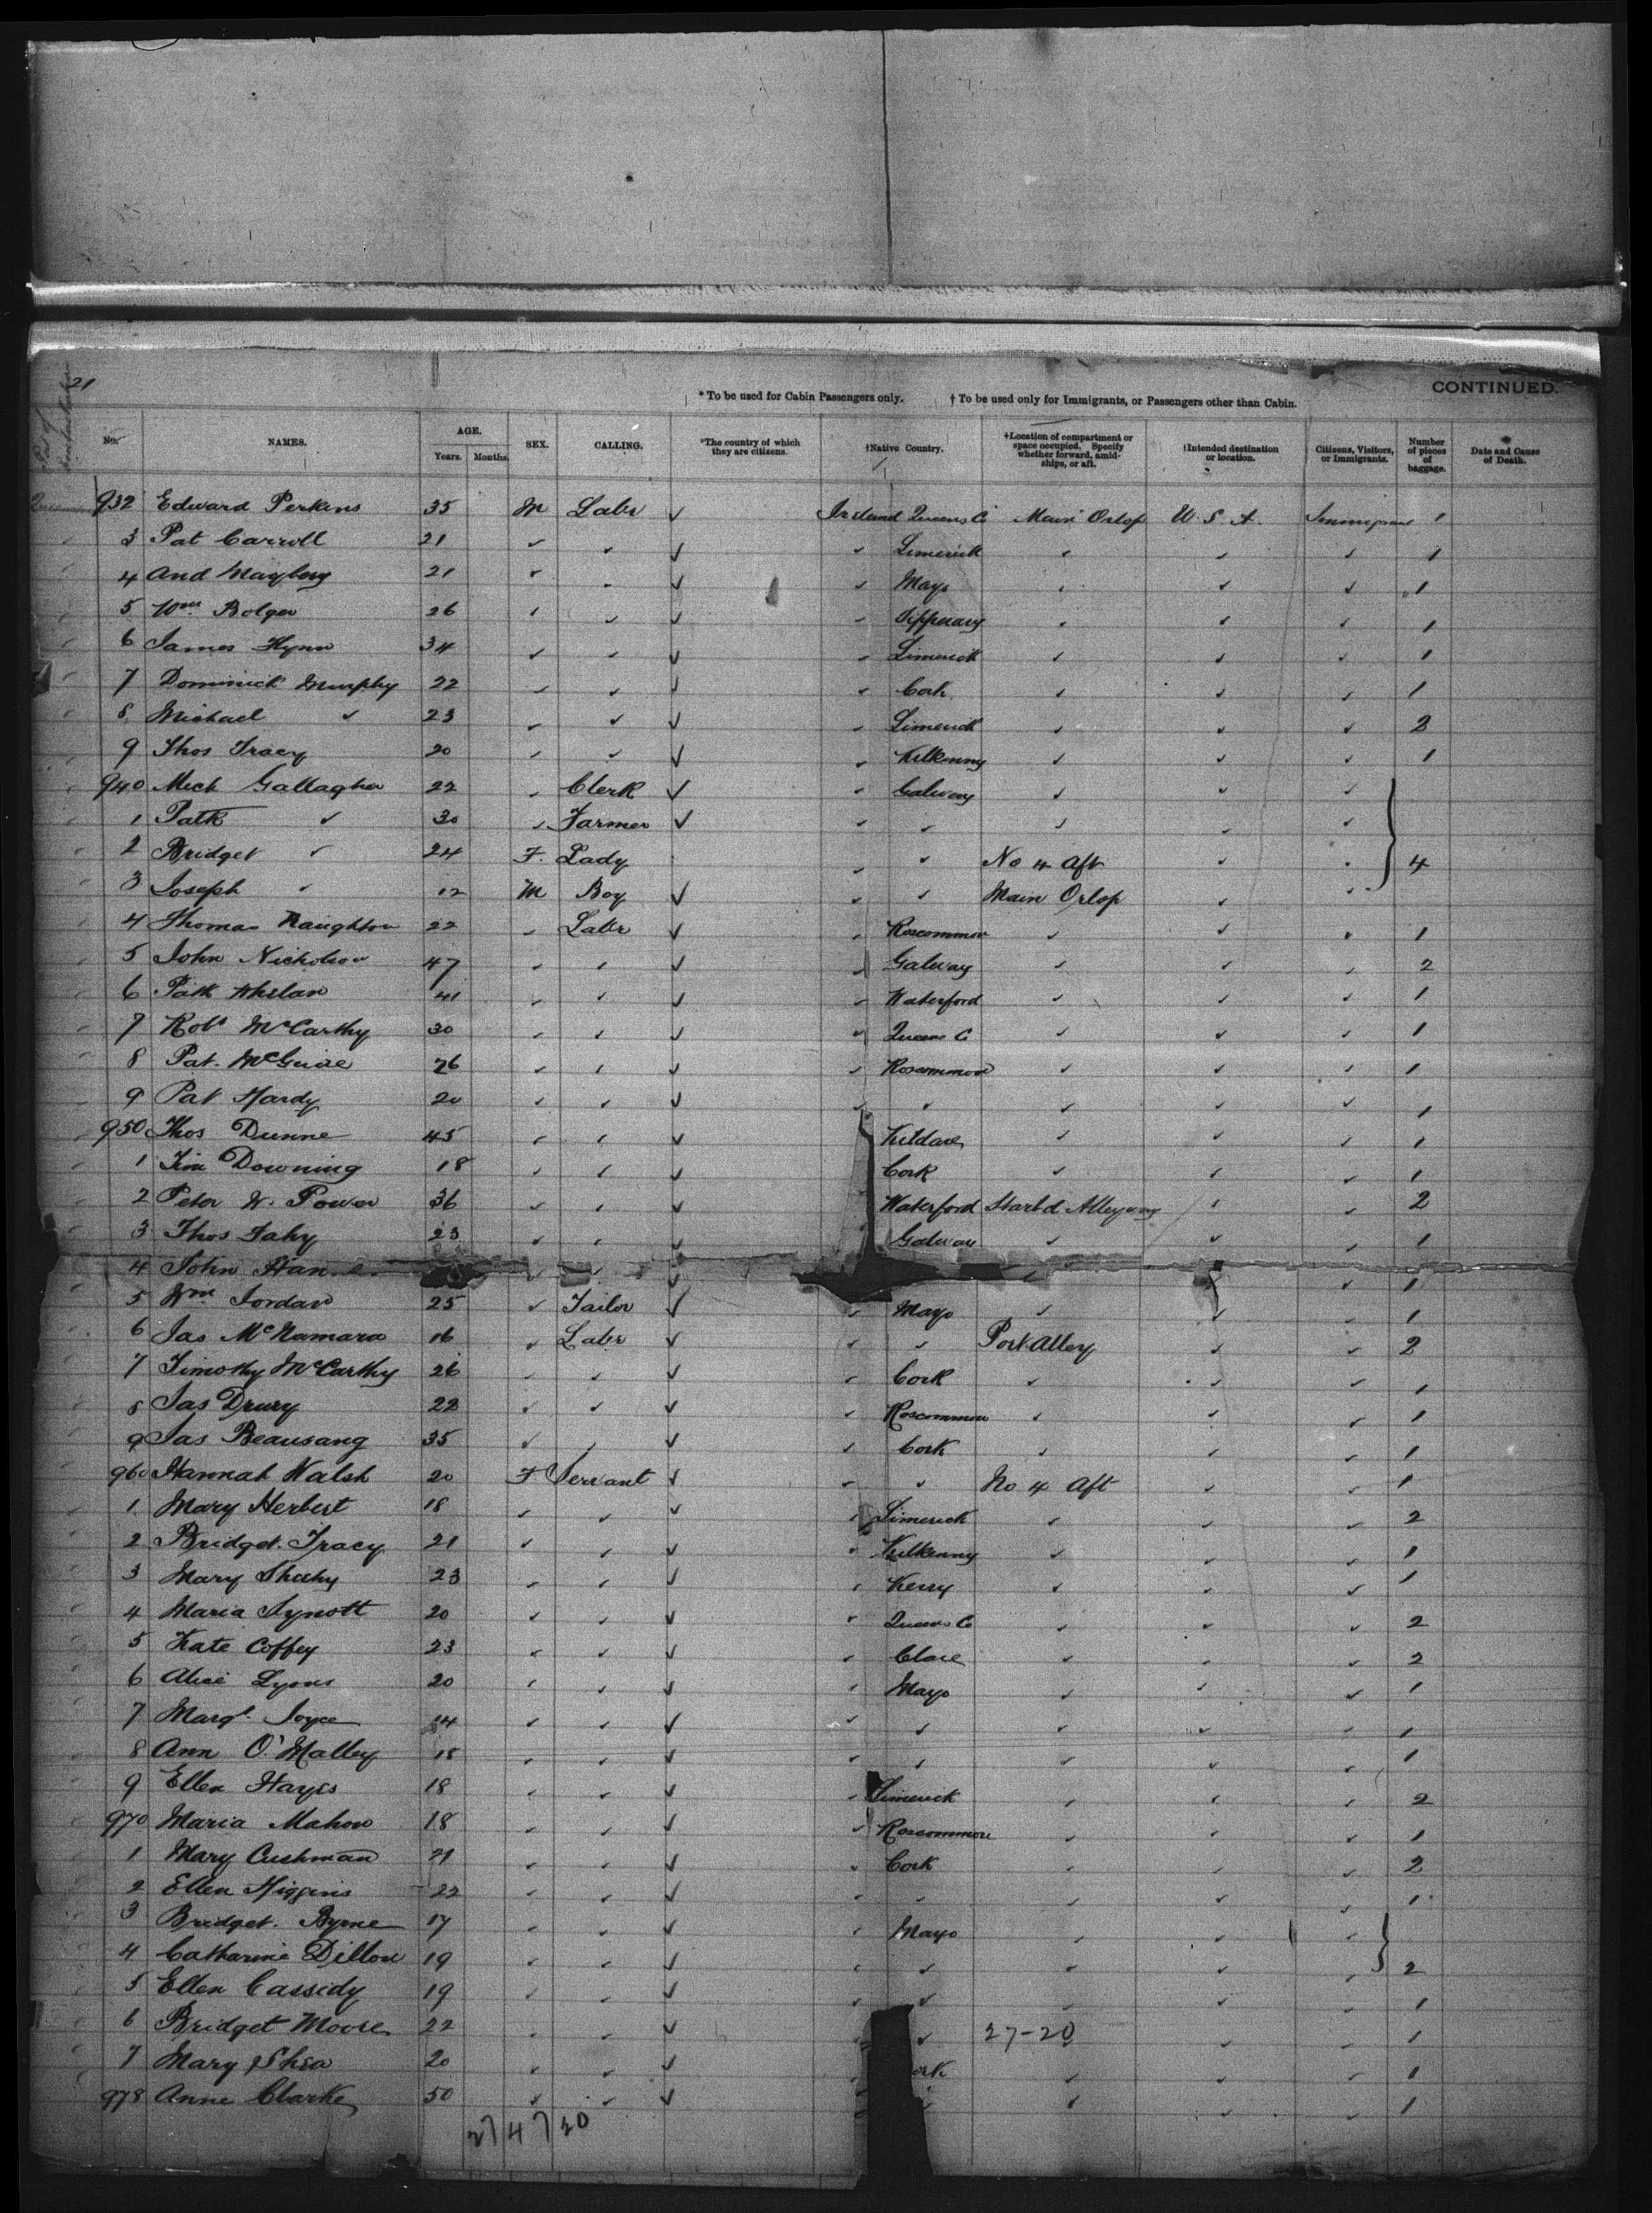 21
* To be used for Cabin Passengers only. † To be used only for Immigrants, or Passengers other than Cabin. CONTINUED.
Port of Embarkation No. NAMES. AGE. Years. Months. SEX. CALLING. *The country of which they are citizens. †Native Country. †Location of compartment or space occupied. Specify whether forward, amidships, or aft. †Intended destination or location. Citizens, Visitors, or Immigrants. Number of pieces of baggage. Date and Cause of Death.
932 Edward Perkins 35 M Labr ✓ Ireland Queens Co Main Orlop U.S.A. Immigrant 1
3 Pat Carroll 21 ✓ ✓ ✓ ✓ Limerick ✓ ✓ ✓ 1
4 And Mayberg 21 ✓ ✓ ✓ ✓ Mayo ✓ ✓ ✓ 1
5 Wm Bolger 26 ✓ ✓ ✓ ✓ Tipperary ✓ ✓ ✓ 1
6 James Flynn 34 ✓ ✓ ✓ ✓ Limerick ✓ ✓ ✓ 1
7 Dominick Murphy 22 ✓ ✓ ✓ ✓ Cork ✓ ✓ ✓ 1
8 Michael ✓ 23 ✓ ✓ ✓ ✓ Limerick ✓ ✓ ✓ 2
9 Thos Tracy 20 ✓ ✓ ✓ ✓ Kilkenny ✓ ✓ ✓ 1
940 Mich Gallagher 22 ✓ Clerk ✓ ✓ Galway ✓ ✓ ✓
1 Patk ✓ 30 ✓ Farmer ✓ ✓ ✓ ✓ ✓ ✓
2 Bridget ✓ 24 F. Lady ✓ ✓ No 4 Aft ✓ ✓ 4
3 Joseph ✓ 12 M Boy ✓ ✓ ✓ Main Orlop ✓ ✓
4 Thomas Naughton 22 ✓ Labr ✓ ✓ Roscommon ✓ ✓ ✓ 1
5 John Nicholson 47 ✓ ✓ ✓ ✓ Galway ✓ ✓ ✓ 2
6 Patk Whelan 41 ✓ ✓ ✓ ✓ Waterford ✓ ✓ ✓ 1
7 Robt McCarthy 30 ✓ ✓ ✓ ✓ Queens Co ✓ ✓ ✓ 1
8 Pat. McGuire 26 ✓ ✓ ✓ ✓ Roscommon ✓ ✓ ✓ 1
9 Pat Hardy 20 ✓ ✓ ✓ ✓ ✓ ✓ ✓ ✓ 1
950 Thos Dunne 45 ✓ ✓ ✓ Kildare ✓ ✓ ✓ 1
1 Tim Downing 18 ✓ ✓ ✓ Cork ✓ ✓ ✓ 1
2 Peter W. Power 36 ✓ ✓ ✓ Waterford Starbd Alleyway ✓ ✓ 2
3 Thos Fahy 23 ✓ ✓ ✓ Galway ✓ ✓ ✓ 1
4 John ✓ ✓ ✓ ✓ ✓ ✓ 1
5 Wm Jordan 25 ✓ Tailor ✓ ✓ Mayo ✓ ✓ ✓ 1
6 Jas McNamara 16 ✓ Labr ✓ ✓ ✓ Port Alley ✓ ✓ 2
7 Timothy McCarthy 26 ✓ ✓ ✓ ✓ Cork ✓ ✓ ✓ 1
8 Jas Drury 22 ✓ ✓ ✓ ✓ Roscommon ✓ ✓ ✓ 1
9 Jas Beausang 35 ✓ ✓ ✓ ✓ Cork ✓ ✓ ✓ 1
960 Hannah Walsh 20 F Servant ✓ ✓ ✓ No 4 Aft ✓ ✓ 1
1 Mary Herbert 18 ✓ ✓ ✓ ✓ Limerick ✓ ✓ ✓ 2
2 Bridget Tracy 21 ✓ ✓ ✓ ✓ Kilkenny ✓ ✓ ✓ 1
3 Mary Sheehy 23 ✓ ✓ ✓ ✓ Kerry ✓ ✓ ✓ 1
4 Maria Synott 20 ✓ ✓ ✓ ✓ Queens Co ✓ ✓ ✓ 2
5 Kate Coffey 23 ✓ ✓ ✓ ✓ Clare ✓ ✓ ✓ 2
6 Alice Lyons 20 ✓ ✓ ✓ ✓ Mayo ✓ ✓ ✓ 1
7 Margt. Joyce 14 ✓ ✓ ✓ ✓ ✓ ✓ ✓ ✓ 1
8 Ann O'Malley 18 ✓ ✓ ✓ ✓ ✓ ✓ ✓ ✓ 1
9 Ellen Hayes 18 ✓ ✓ ✓ ✓ Limerick ✓ ✓ ✓ 2
970 Maria Mahon 18 ✓ ✓ ✓ ✓ Roscommon ✓ ✓ ✓ 1
1 Mary Cushman 21 ✓ ✓ ✓ ✓ Cork ✓ ✓ ✓ 2
2 Ellen Higgins 22 ✓ ✓ ✓ ✓ ✓ ✓ ✓ ✓ 1
3 Bridget Byrne 17 ✓ ✓ ✓ ✓ Mayo ✓ ✓ ✓
4 Catharine Dillon 19 ✓ ✓ ✓ ✓ ✓ ✓ ✓ ✓ 2
5 Ellen Cassidy 19 ✓ ✓ ✓ ✓ ✓ ✓ ✓ ✓ 1
6 Bridget Moore 22 ✓ ✓ ✓ ✓ 27-20 ✓ ✓ 1
7 Mary Shea 20 ✓ ✓ ✓ ork ✓ ✓ ✓ 1
978 Anne Clarke 50 ✓ ✓ ✓ ✓ ✓ ✓ 1
27 47 20